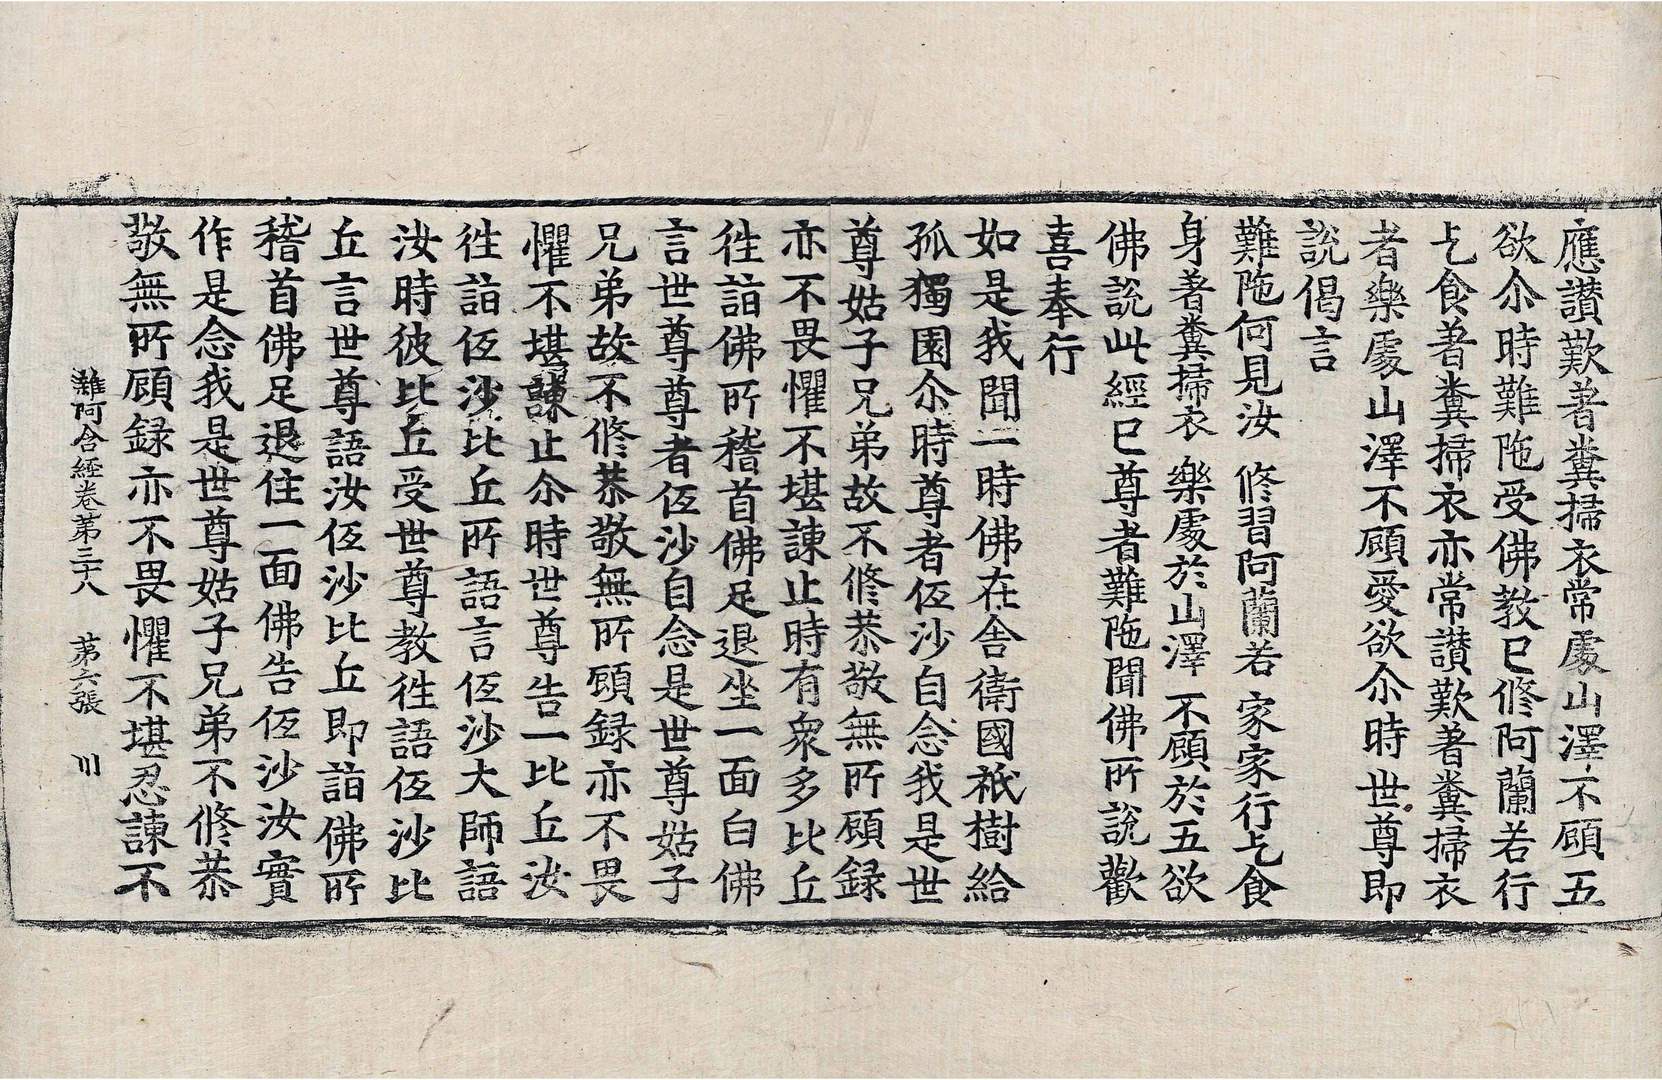 應讃歎著糞掃衣常處山澤不顧五
欲尒時難陁受佛教已修阿蘭若行
乞食著糞掃衣亦常讃歎著糞掃衣
者樂處山澤不顧愛欲尒時世尊即
說偈言
難陁何見汝 修習阿蘭若 家家行乞食
身著糞掃衣 樂處於山澤 不顧於五欲
佛說此經已尊者難陁聞佛所說歡
喜奉行
如是我聞一時佛在舍衛國祇樹給
孤獨園尒時尊者低沙自念我是世
尊姑子兄弟故不修恭敬無所顧録
亦不畏懼不堪諫止時有衆多比丘
往詣佛所稽首佛足退坐一面白佛
言世尊尊者低沙自念是世尊姑子
兄弟故不修恭敬無所顧録亦不畏
懼不堪諫止尒時世尊告一比丘汝
往詣低沙比丘所語言低沙大師語
汝時彼比丘受世尊教往語低沙比
丘言世尊語汝低沙比丘即詣佛所
稽首佛足退住一面佛告低沙汝實
作是念我是世尊姑子兄弟不修恭
敬無所顧録亦不畏懼不堪忍諫不
雜阿含經卷第三十八 第六張